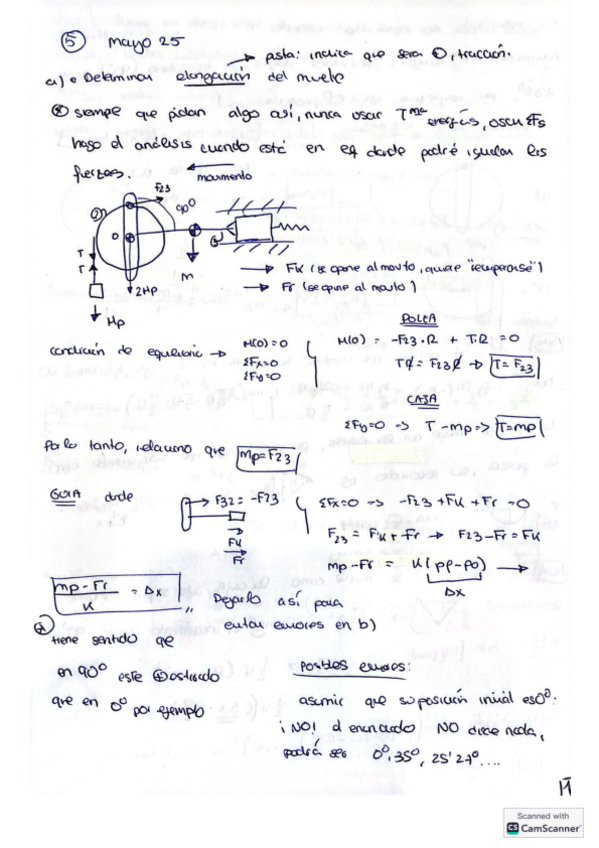 ⑤ Mayo 25
→ pista: indica que sera ⊕, tracción.
a) • Determinar elongación del muelle
⊗ siempre que pidan algo así, nunca usar Tma energías, osea ΣFs
hago el análisis cuando esté en eq donde podré igualar las
fuerzas.
movimiento
F23
90º
2
O
T
T
2Mp
M
Mp
→ FK (se opone al movto, quiere "recuperarse")
→ Fr (se opone al movto)
POLEA
condición de equilibrio → M(O)=0
ΣFx=0
ΣFy=0
M(O) = -F23·R + T·R = 0
TR = F23R → T=F23
CAJA
ΣFy=0 → T-mp => T=mp
Por lo tanto, relaciono que Mp=F23
GUIA donde
F32 = -F23
FK
Fr
ΣFx=0 → -F23+FK+Fr=0
F23 = FK+Fr → F23-Fr=FK
mp-Fr = K(pf-po) →
Δx
mp-Fr / K = Δx
Dejarlo así para
evitar errores en b)
tiene sentido que
en 90º este ⊕ estirado
que en 0º por ejemplo
Posibles errores:
asumir que su posición inicial es 0º:
¡NO! el enunciado NO dice nada,
podrá ser 0º, 35º, 25'27º....
Scanned with
CS CamScanner